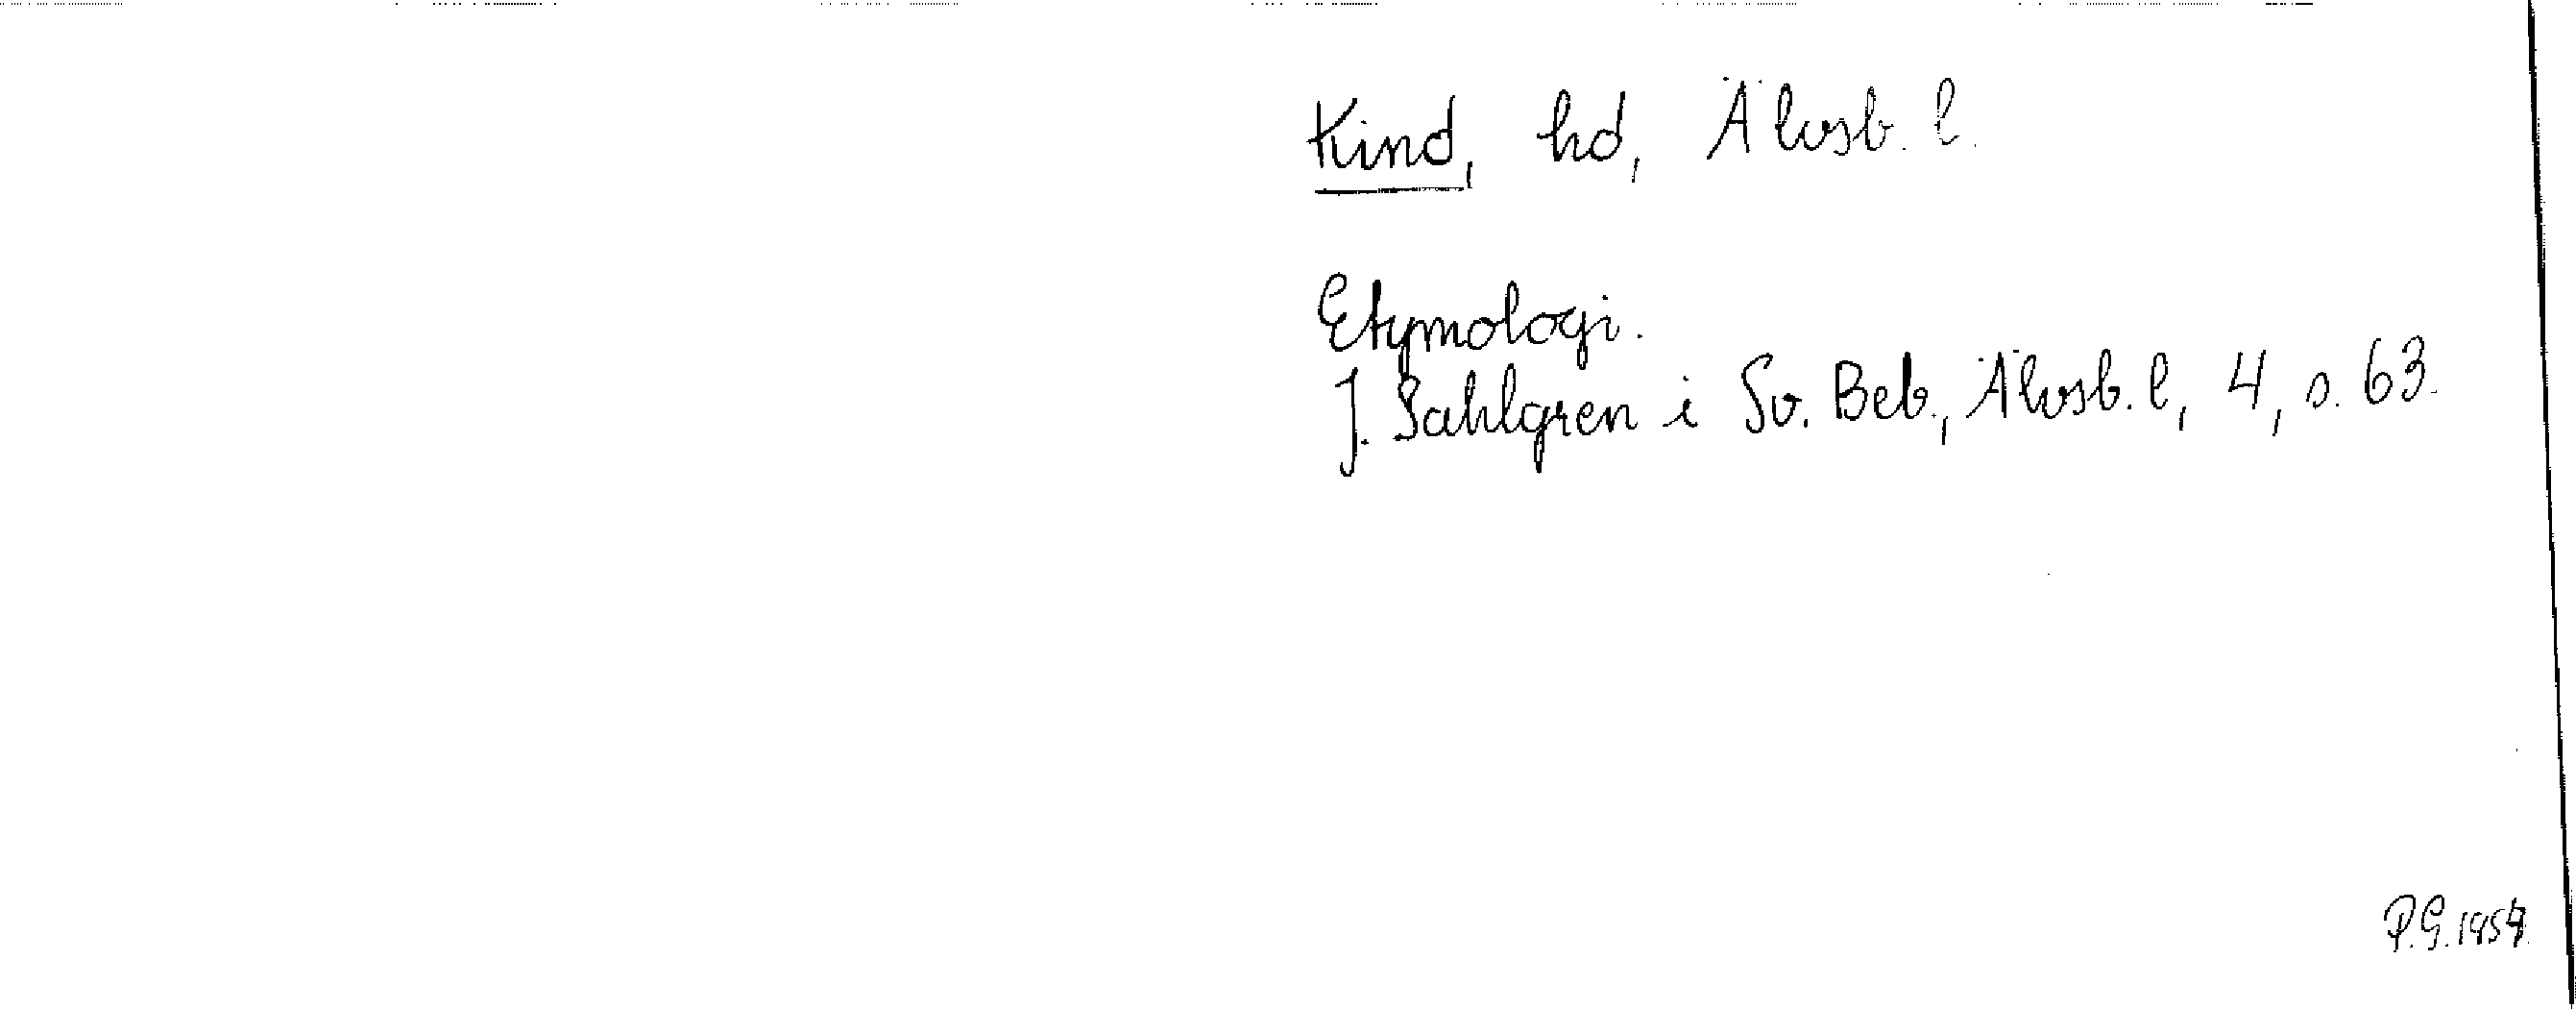 Kind, hd, Älvsb. l.
Etymologi.
J. Sahlgren i Sv. Beb., Älvsb. l, 4, s. 63.
P.G.